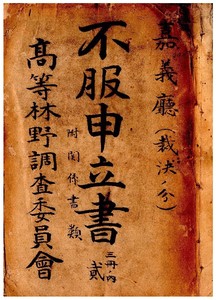 嘉義廳（裁決ノ分）
不服申立書
附関係書類
三冊ノ内
貳
高等林野調查委員會